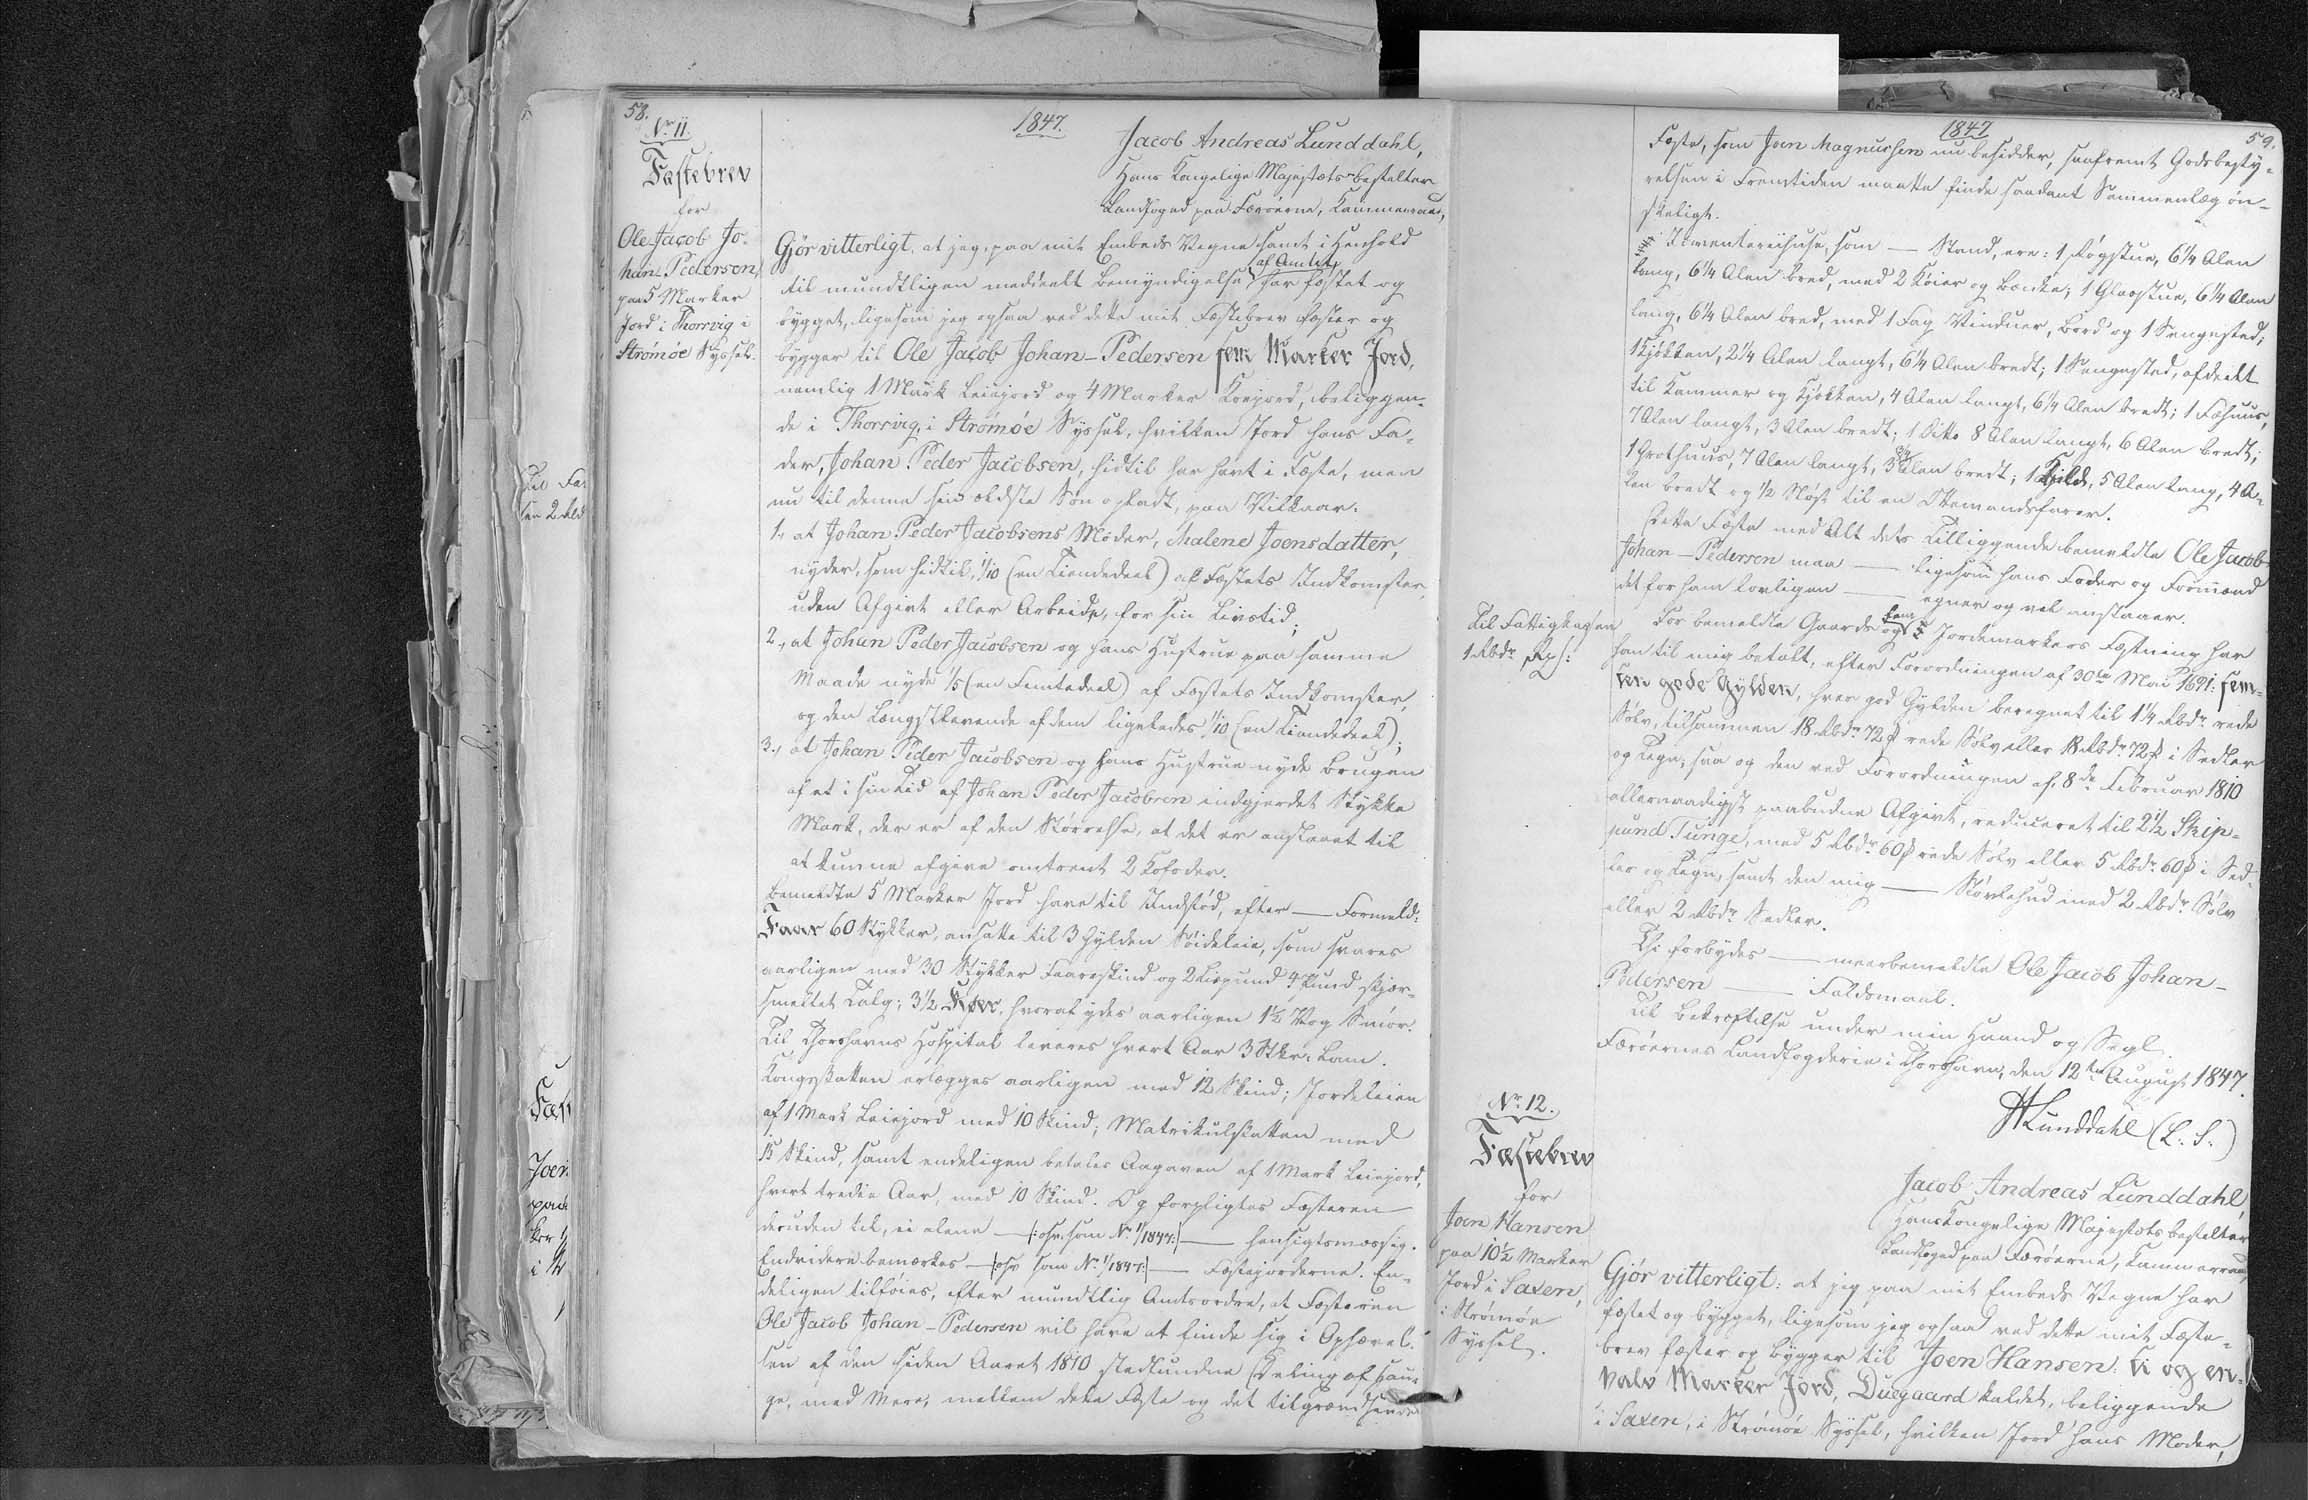 58.
1847.
Nr. 11.
Fæstebrev
for
Ole Jacob Jo-
han-Pedersen,
paa 5 Marker
Jord i Thorsvig i
Strømøe Syssel.
Jacob Andreas Lunddahl,
Hans Kongelige Majestæts bestalter
Landfoged paa Færøerne, Kammerraad,
Gjør vitterligt, at jeg, paa mit Embeds Vegne samt i Henhold
til mundtligen meddeelt Bemyndigelse af Amtet, har fæstet og
bygget, ligesom jeg ogsaa ved dette mit Fæstebrev fæster og
bygger til Ole Jacob Johan-Pedersen fem Marker Jord,
nemlig 1 Mark Leiejord og 4 Marker Koejord, beliggen-
de i Thorsvig, i Strømøe Syssel, hvilken Jord hans Fa-
der, Johan Peder Jacobsen, hidtil har havt i Fæste, men
nu til denne sin ældste Søn opladt, paa Vilkaar:
1., at Johan Peder Jacobsens Moder, Malene Joensdatter,
nyder, som hidtil, 1/10 (en Tiendedeel) af Fæstets Indkomster,
uden Afgivt eller Arbeide, for sin Livstid;
2., at Johan Peder Jacobsen og hans Hustrue paa samme
Maade nyde 1/5 (en Femtedeel) af Fæstets Indkomster,
og den Længstlevende af dem ligeledes 1/10 (en Tiendedeel);
3., at Johan Peder Jacobsen og hans Hustrue nyde Brugen
af et i sin Tid af Johan Peder Jacobsen indgjerdet Stykke
Mark, der er af den Størrelse, at det er anslaaet til
at kunne afgive omtrent 2 Kofoder.
Bemeldte 5 Marker Jord have til Indstød, efter — Formeld:
Faar 60 Stykker, ansatte til 3 Gylden Søideleie, som svares
aarligen med 30 Stykker Faareskind og 2 Lispund 4 Pund skjær-
smeltet Talg; 3½ Køer, hvoraf ydes aarligen 1½ Vog Smør.
Til Thorshavns Hospital leveres hvert Aar 3 Stkr. Lam.
Kongsskatten erlægges aarligen med 12 Skind; Jordeleien
af 1 Mark Leiejord med 10 Skind; Matrikulskatten med
15 Skind, samt endeligen betales Aagaven af 1 Mark Leiejord,
hvert tredie Aar, med 10 Skind. Og forpligtes Fæsteren
desuden til, ei alene —|: osv. som Nr. 1/1847:|— hensigtsmæssig.
Endvidere bemærkes —|: osv som Nr. 1/1847:|— Fæstejorderne. En-
deligen tilføies, efter mundtlig Amtsordre, at Fæsteren
Ole Jacob Johan-Pedersen vil have at finde sig i Ophævel-
sen af den siden Aaret 1810 stedfundne Deling af Hau-
ge, med Mere, mellem dette Fæste og det tilgrændsende
1847
59.
Fæste, som Joen Magnussen nu besidder, saafremt Godsbesty-
relsen i Fremtiden maatte finde saadant Sammenlæg øn-
skeligt.
Inventariihuse, som — Stand, ere: 1 Røgstue, 6¼ Alen
lang, 6¼ Alen bred, med 2 Køier og Bænke; 1 Glasstue, 6¼ Alen
lang, 6¼ Alen bred, med 1 Fag Vinduer, Bord og 1 Sengested;
1 Kjøkken, 2¼ Alen langt, 6¼ Alen bredt; 1 Sengested, afdeelt
til Kammer og Kjøkken, 4 Alen langt, 6¼ Alen bredt; 1 Fæhuus,
7 Alen langt, 3 Alen bredt; 1 Ditto 8 Alen langt, 6 Alen bredt;
1 Grothuus, 7 Alen langt, 3¾ Alen bredt; 1 Hjeld, 5 Alen lang, 4 A-
len bredt og ½ Nøst til en Ottemandsfarer.
Dette Fæste med Alt dets Tilliggende bemeldte Ole Jacob
Johan-Pedersen maa — ligesom hans Fader og Formænd
det for ham lovligen — egner og vel anstaaer.
Til Fattigkassen
1 Rbdr.
For bemeldte Gaards og fem 5 Jordemarkers Fæstning har
han til mig betalt, efter Forordningen af 30te Mai 1691: fem-
ten gode Gylden, hver god Gylden beregnet til 1¼ Rbdr. rede
Sølv, tilsammen 18 Rbdr. 72 ß rede Sølv eller 18 Rbdr. 72 ß i Sedler
og Tegn, saa og den ved Forordningen af 8de Februar 1810
allernaadigst paabudne Afgivt, reduceret til 2½ Skip-
pund Tunge, med 5 Rbdr. 60 ß rede Sølv eller 5 Rbdr. 60 ß i Sed-
ler og Tegn, samt den mig — Størkehud med 2 Rbdr. Sølv
eller 2 Rbdr. Sedler.
Thi forbydes — meerbemeldte Ole Jacob Johan-
Pedersen — Faldsmaal.
Til Bekræftelse under min Haand og Segl.
Færøernes Landfogderie i Thorshavn, den 12te August 1847.
Lunddahl (L. S.)
Nr. 12.
Fæstebrev
for
Joen Hansen
paa 10½ Marker
Jord i Saxen,
i Strømøe
Syssel.
Jacob Andreas Lunddahl,
Hans Kongelige Majestæts bestalter
Landfoged paa Færøerne, Kammerraad,
Gjør vitterligt: at jeg paa mit Embeds Vegne har
fæstet og bygget, ligesom jeg ogsaa ved dette mit Fæste-
brev fæster og bygger til Joen Hansen: ti og en
halv Marker Jord, Duegaard kaldet, beliggende
i Saxen, i Strømøe Syssel, hvilken Jord hans Moder,